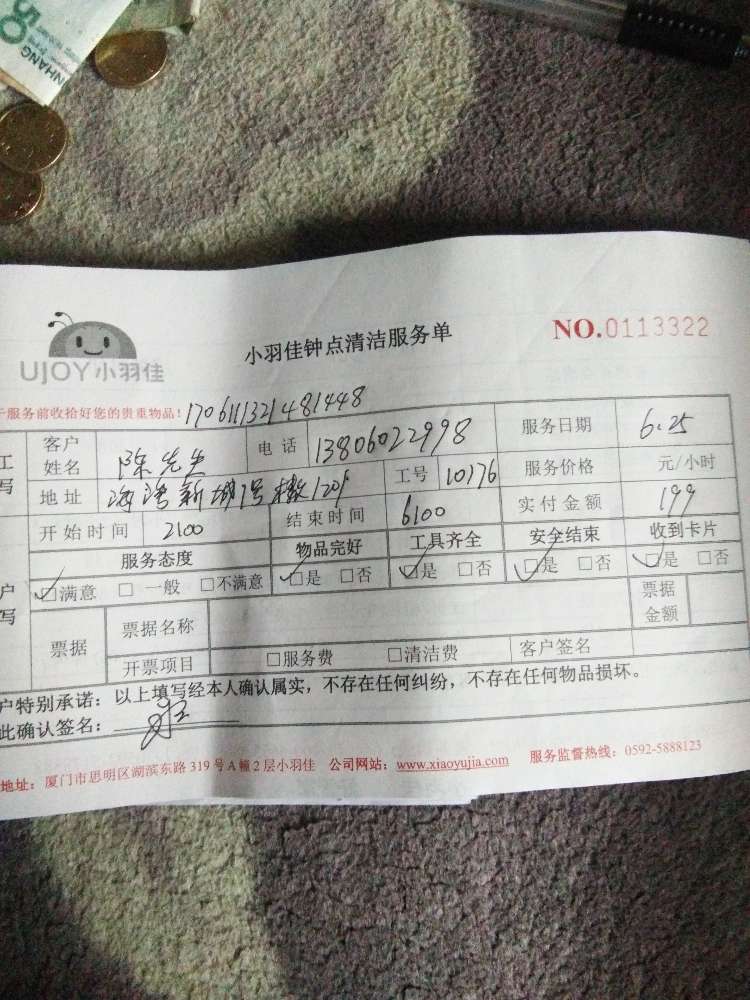 50
NHANG
UJOY小羽佳
小羽佳钟点清洁服务单
NO.0113322
服务前收拾好您的贵重物品!
1706111321481448
工
写
客户姓名 陈先生 电话 13806022998 服务日期 6.25
地址 海湾新城1号楼1201 工号 10176 服务价格 元/小时
开始时间 2100 结束时间 6100 实付金额 199
服务态度 物品完好 工具齐全 安全结束 收到卡片
户
写
☑满意 □一般 □不满意 ☑是 □否 ☑是 □否 ☑是 □否 ☑是 □否
票据 票据名称 票据金额
开票项目 □服务费 □清洁费 客户签名
户特别承诺:以上填写经本人确认属实,不存在任何纠纷,不存在任何物品损坏。
此确认签名:
地址:厦门市思明区湖滨东路319号A幢2层小羽佳 公司网站:www.xiaoyujia.com 服务监督热线:0592-5888123